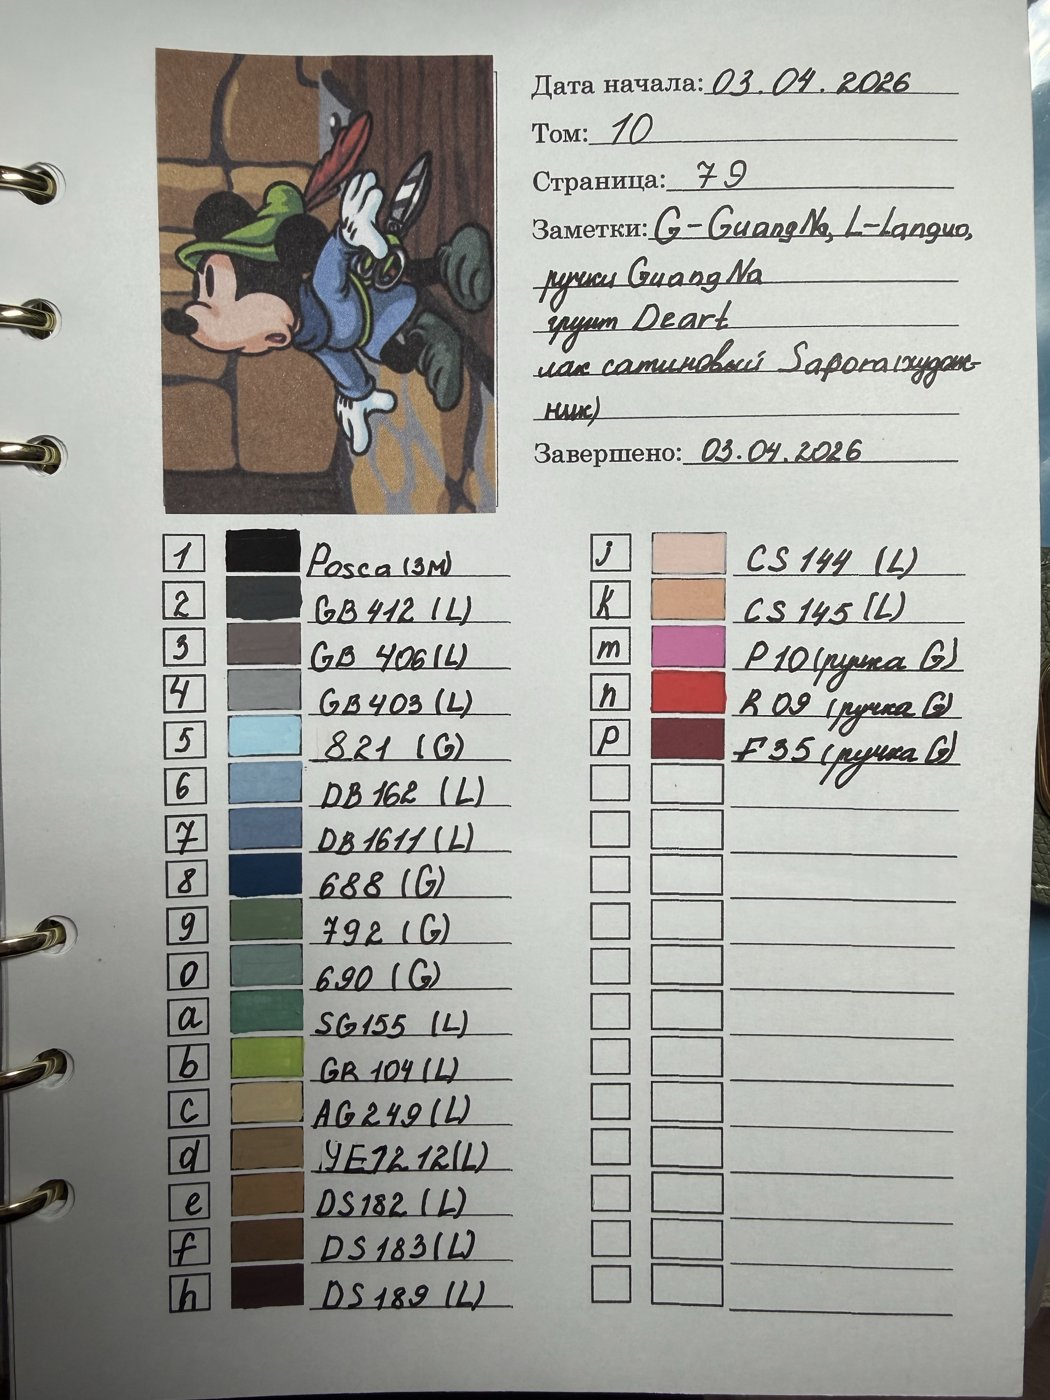 Дата начала: 03.04.2026
Том: 10
Страница: 79
Заметки: G-GuangNa, L-Languo,
ручки GuangNa
грунт Deart
лак сатиновый Sapora (худож-
ник)
Завершено: 03.04.2026
1 Posca (3M)
2 GB 412 (L)
3 GB 406 (L)
4 GB 403 (L)
5 821 (G)
6 DB 162 (L)
7 DB 1611 (L)
8 688 (G)
9 792 (G)
0 690 (G)
a SG155 (L)
b GR 104 (L)
c AG 249 (L)
d YE1212 (L)
e DS182 (L)
f DS183 (L)
h DS189 (L)
j CS 144 (L)
k CS 145 (L)
m P 10 (ручка G)
n R 09 (ручка G)
p F 35 (ручка G)